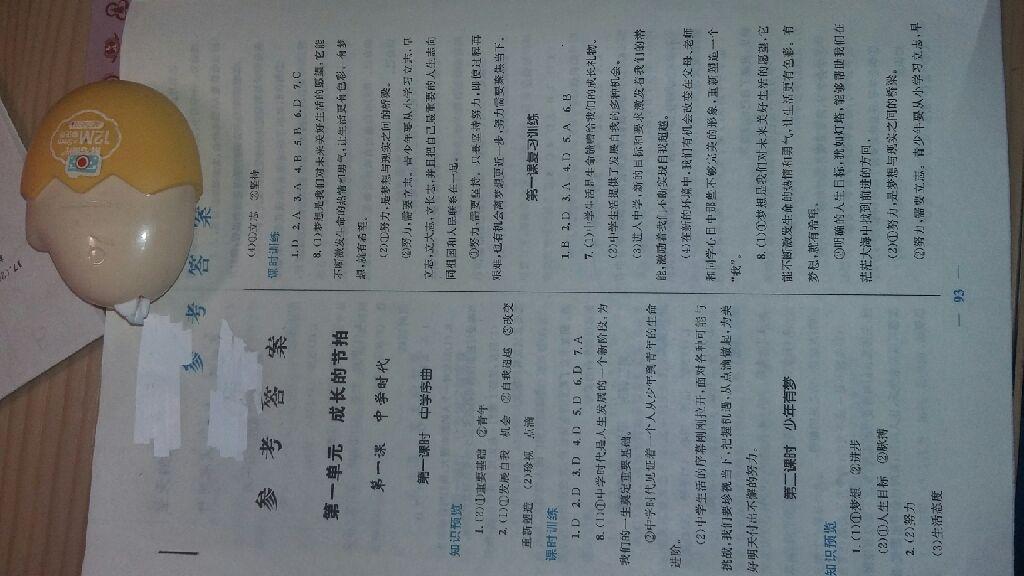 参考答案
参考答案
第一单元 成长的节拍
第一课 中学时代
第一课时 中学序曲
知识预览
1.(2)①重要基础 ②青年
2.(1)①发展自我 机会 ②自我超越 ③改变
重新塑造 (2)珍视 点滴
课时训练
1.D 2.D 3.D 4.D 5.D 6.D 7.A
8.(1)①中学时代是人生发展的一个新阶段,为
我们的一生奠定重要基础。
②中学时代见证着一个人从少年到青年的生命
进阶。
(2)中学生活的序幕刚刚拉开,面对各种可能与
挑战,我们要珍视当下,把握机遇,从点滴做起,为美
好明天付出不懈的努力。
第二课时 少年有梦
知识预览
1.(1)①梦想 ②进步
(2)①人生目标 ②脉搏
2.(2)努力
(3)生活态度
(4)①立志 ②坚持
课时训练
1.D 2.A 3.A 4.B 5.B 6.D 7.C
8.(1)梦想是我们对未来美好生活的愿望,它能
不断激发生命的热情和勇气,让生活更有色彩;有梦
想,就有希望。
(2)①努力,是梦想与现实之间的桥梁。
②努力,需要立志。青少年要从小学习立志,早
立志,立大志,立长志,并且把自己最重要的人生志向
同祖国和人民联系在一起。
③努力,需要坚持。只要坚持努力,即使过程再
艰难,也有机会离梦想更近一步;努力需要聚焦当下。
第一课复习训练
1.B 2.D 3.A 4.D 5.A 6.B
7.(1)中学生活是生命馈赠给我们的成长礼物。
(2)中学生活提供了发展自我的多种机会。
(3)进入中学,新的目标和要求激发着我们的潜
能,激励着我们不断实现自我超越。
(4)在新的环境中,我们有机会改变在父母、老师
和同学心目中那些不够完美的形象,重新塑造一个
“我”。
8.(1)①梦想是我们对未来美好生活的愿望,它
能不断激发生命的热情和勇气,让生活更有色彩。有
梦想,就有希望。
②明确的人生目标,犹如灯塔,能够帮助我们在
茫茫大海中找到前进的方向。
(2)①努力,是梦想与现实之间的桥梁。
②努力,需要立志。青少年要从小学习立志,早
— 93 —
12M